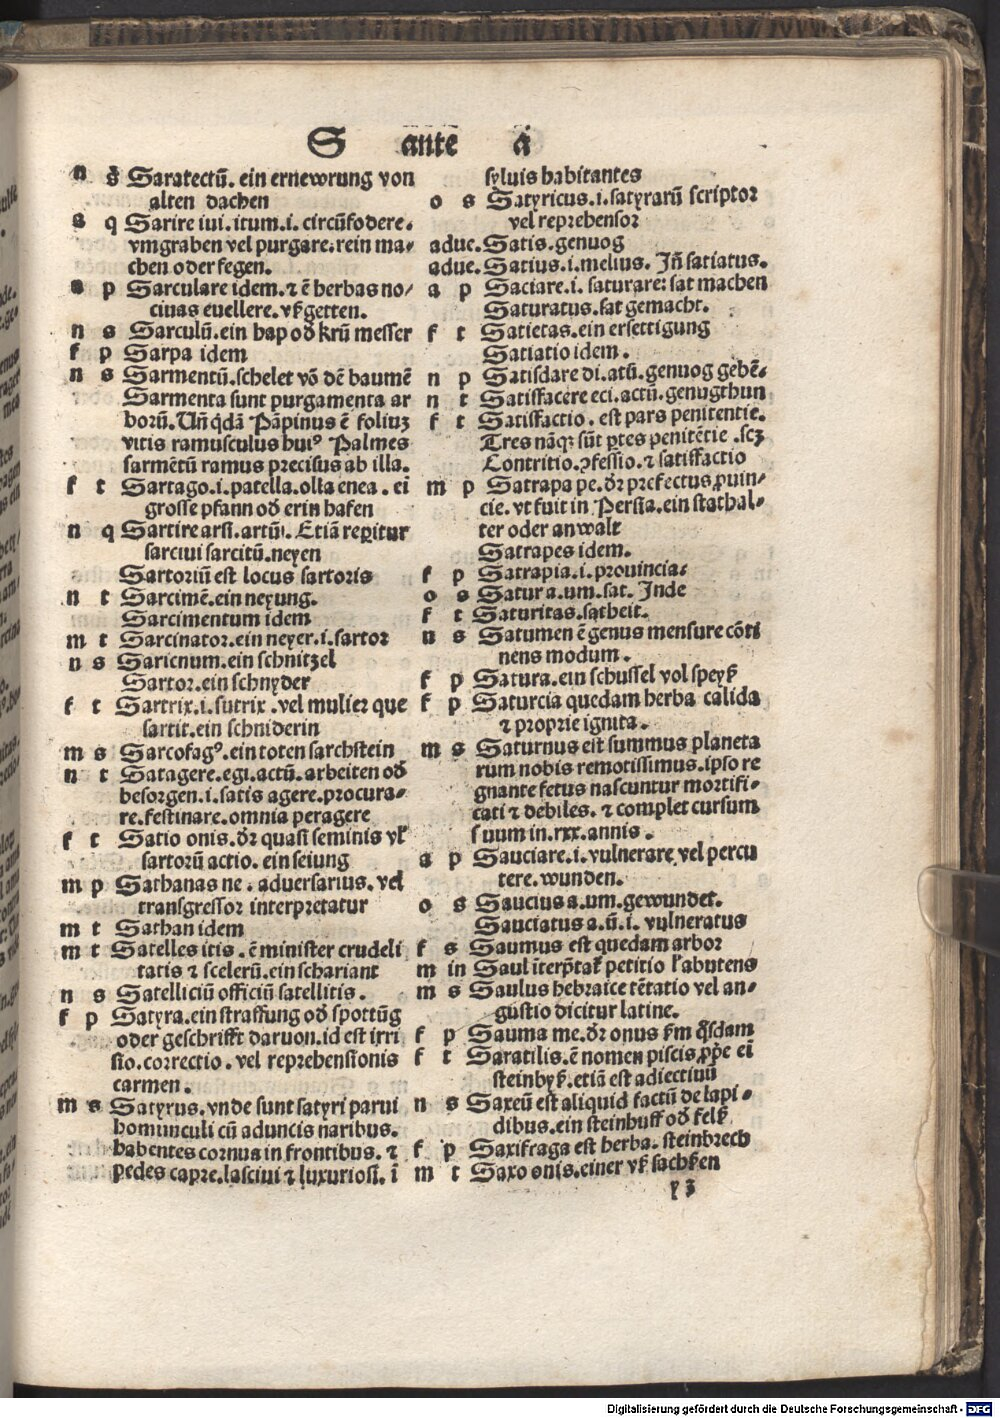 S ante a
n s Saratectū. ein ernewrung von
alten dachen
a q Sarire iui. itum. i. circūfodere.
vmgraben vel purgare. rein ma-
chen oder fegen.
a p Sarculare idem. ⁊ ē herbas no-
ciuas euellere. vßgetten.
n s Sarculū. ein hap od̕ krū messer
f p Sarpa idem
n s Sarmentū. schelet vō dē baumē
Sarmenta sunt purgamenta ar
borū. Uñ q̇dā Pāpinus ē foliuꝫ
vitis ramusculus huiꝰ Palmes
sarmētū ramus precisus ab illa.
f t Sartago. i. patella. olla enea. ein
grosse pfann od̕ erin hafen
n q Sartire arsi. artū. Etiā reꝑitur
sarciui sarcitū. neyen
Sartoriū est locus sartoris
n t Sarcimē. ein neyung.
Sarcimentum idem
m t Sarcinator. ein neyer. i. sartor
n s Saricnum. ein schnitzel
Sartor. ein schnyder
f t Sartrix. i. sutrix. vel mulier que
sartit. ein schniderin
m s Sarcofagꝰ. ein toten sarchstein
n t Satagere. egi. actū. arbeiten od̕
besorgen. i. satis agere. procura-
re. festinare. omnia peragere
f t Satio onis. dr̄ quasi seminis vl̕
sartorū actio. ein seiung
m p Sathanas ne. aduersarius. vel
transgressor interpretatur
m t Sathan idem
m t Satelles itis. ē minister crudeli
tatis ⁊ scelerū. ein schariant
n s Satelliciū officiū satellitis.
f p Satyra. ein straffung od̕ spottūg
oder geschrifft daruon. id est irri
sio. correctio. vel reprehensionis
carmen.
m s Satyrus. vnde sunt satyri parui
homunculi cū aduncis naribus.
habentes cornus in frontibus. ⁊
pedes capre. lasciui ⁊ luxuriosi. ī
syluis habitantes
o s Satyricus. i. satyrarū scriptor
vel reprehensor
adue. Satis. genuog
adue. Satius. i. melius. Jñ satiatus.
a p Saciare. i. saturare: sat machen
Saturatus. sat gemacht.
f t Satietas. ein ersettigung
Satiatio idem.
n p Satisdare di. atū. genuog gebē-
n t Satisfacere eci. actū. genugthun
f t Satisfactio. est pars penitentie.
Tres nāqꝫ sūt ꝑtes penitētie. scꝫ
Contritio. ꝯfessio. ⁊ satisfactio
m p Satrapa pe. dr̄ prefectus ꝓuin-
cie. vt fuit in Persia. ein stathal-
ter oder anwalt
Satrapes idem.
f p Satrapia. i. prouincia.
o s Satur a. um. sat. Inde
f t Saturitas. satheit.
n s Satumen ē genus mensure cōti
nens modum.
f p Satura. ein schussel vol speyß
f p Saturcia quedam herba calida
⁊ proprie ignita.
m s Saturnus est summus planeta
rum nobis remotissimus. ipso re
gnante fetus nascuntur mortifi-
cati ⁊ debiles. ⁊ complet cursum
suum in. rxx. annis.
a p Sauciare. i. vulnerare vel percu
tere. wunden.
o s Saucius a. um. gewundet.
Sauciatus a. ū. i. vulneratus
f s Saumus est quedam arbor
m in Saul īterp̄tat̕ petitio l̕ abutens
m s Saulus hebraice tētatio vel an-
gustio dicitur latine.
f p Sauma me. dr̄ onus ẜm q̄sdam
f t Saxatilis. ē nomen piscis ꝓpͤe ein
steinbyß. etiā est adiectiuū
n s Saxeū est aliquid factū de lapi-
dibus. ein steinhuff od̕ felß
f p Saxifraga est herba. steinbrech
m t Saxo onis. einer vß sachßen
y 3
Digitalisierung gefördert durch die Deutsche Forschungsgemeinschaft - DFG